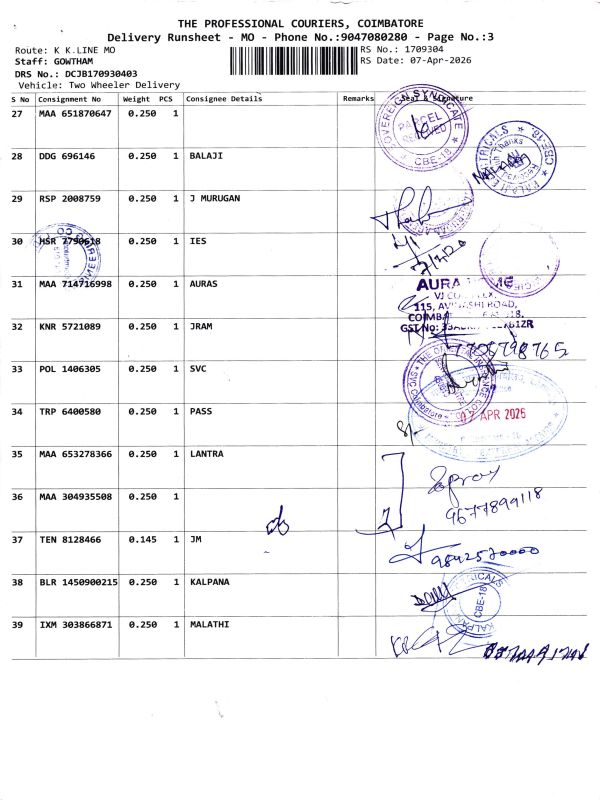 THE PROFESSIONAL COURIERS, COIMBATORE
Delivery Runsheet - MO - Phone No.:9047080280 - Page No.:3
Route: K K.LINE MO
RS No.: 1709304
Staff: GOWTHAM
RS Date: 07-Apr-2026
DRS No.: DCJB170930403
Vehicle: Two Wheeler Delivery
S No Consignment No Weight PCS Consignee Details Remarks Seal & Signature
27 MAA 651870647 0.250 1
SOVEREIGN SYNDICATE
PARCEL
RECEIVED
CBE-18
28 DDG 696146 0.250 1 BALAJI
CBE-18
29 RSP 2008759 0.250 1 J MURUGAN
30 MSR 7790618 0.250 1 IES
31 MAA 714716998 0.250 1 AURAS
AURA
115, AVINASHI ROAD,
GST No:
32 KNR 5721089 0.250 1 JRAM
33 POL 1406305 0.250 1 SVC
34 TRP 6400580 0.250 1 PASS
APR 2026
35 MAA 653278366 0.250 1 LANTRA
36 MAA 304935508 0.250 1
9677899118
37 TEN 8128466 0.145 1 JM
9842520000
38 BLR 1450900215 0.250 1 KALPANA
CBE-18
39 IXM 303866871 0.250 1 MALATHI